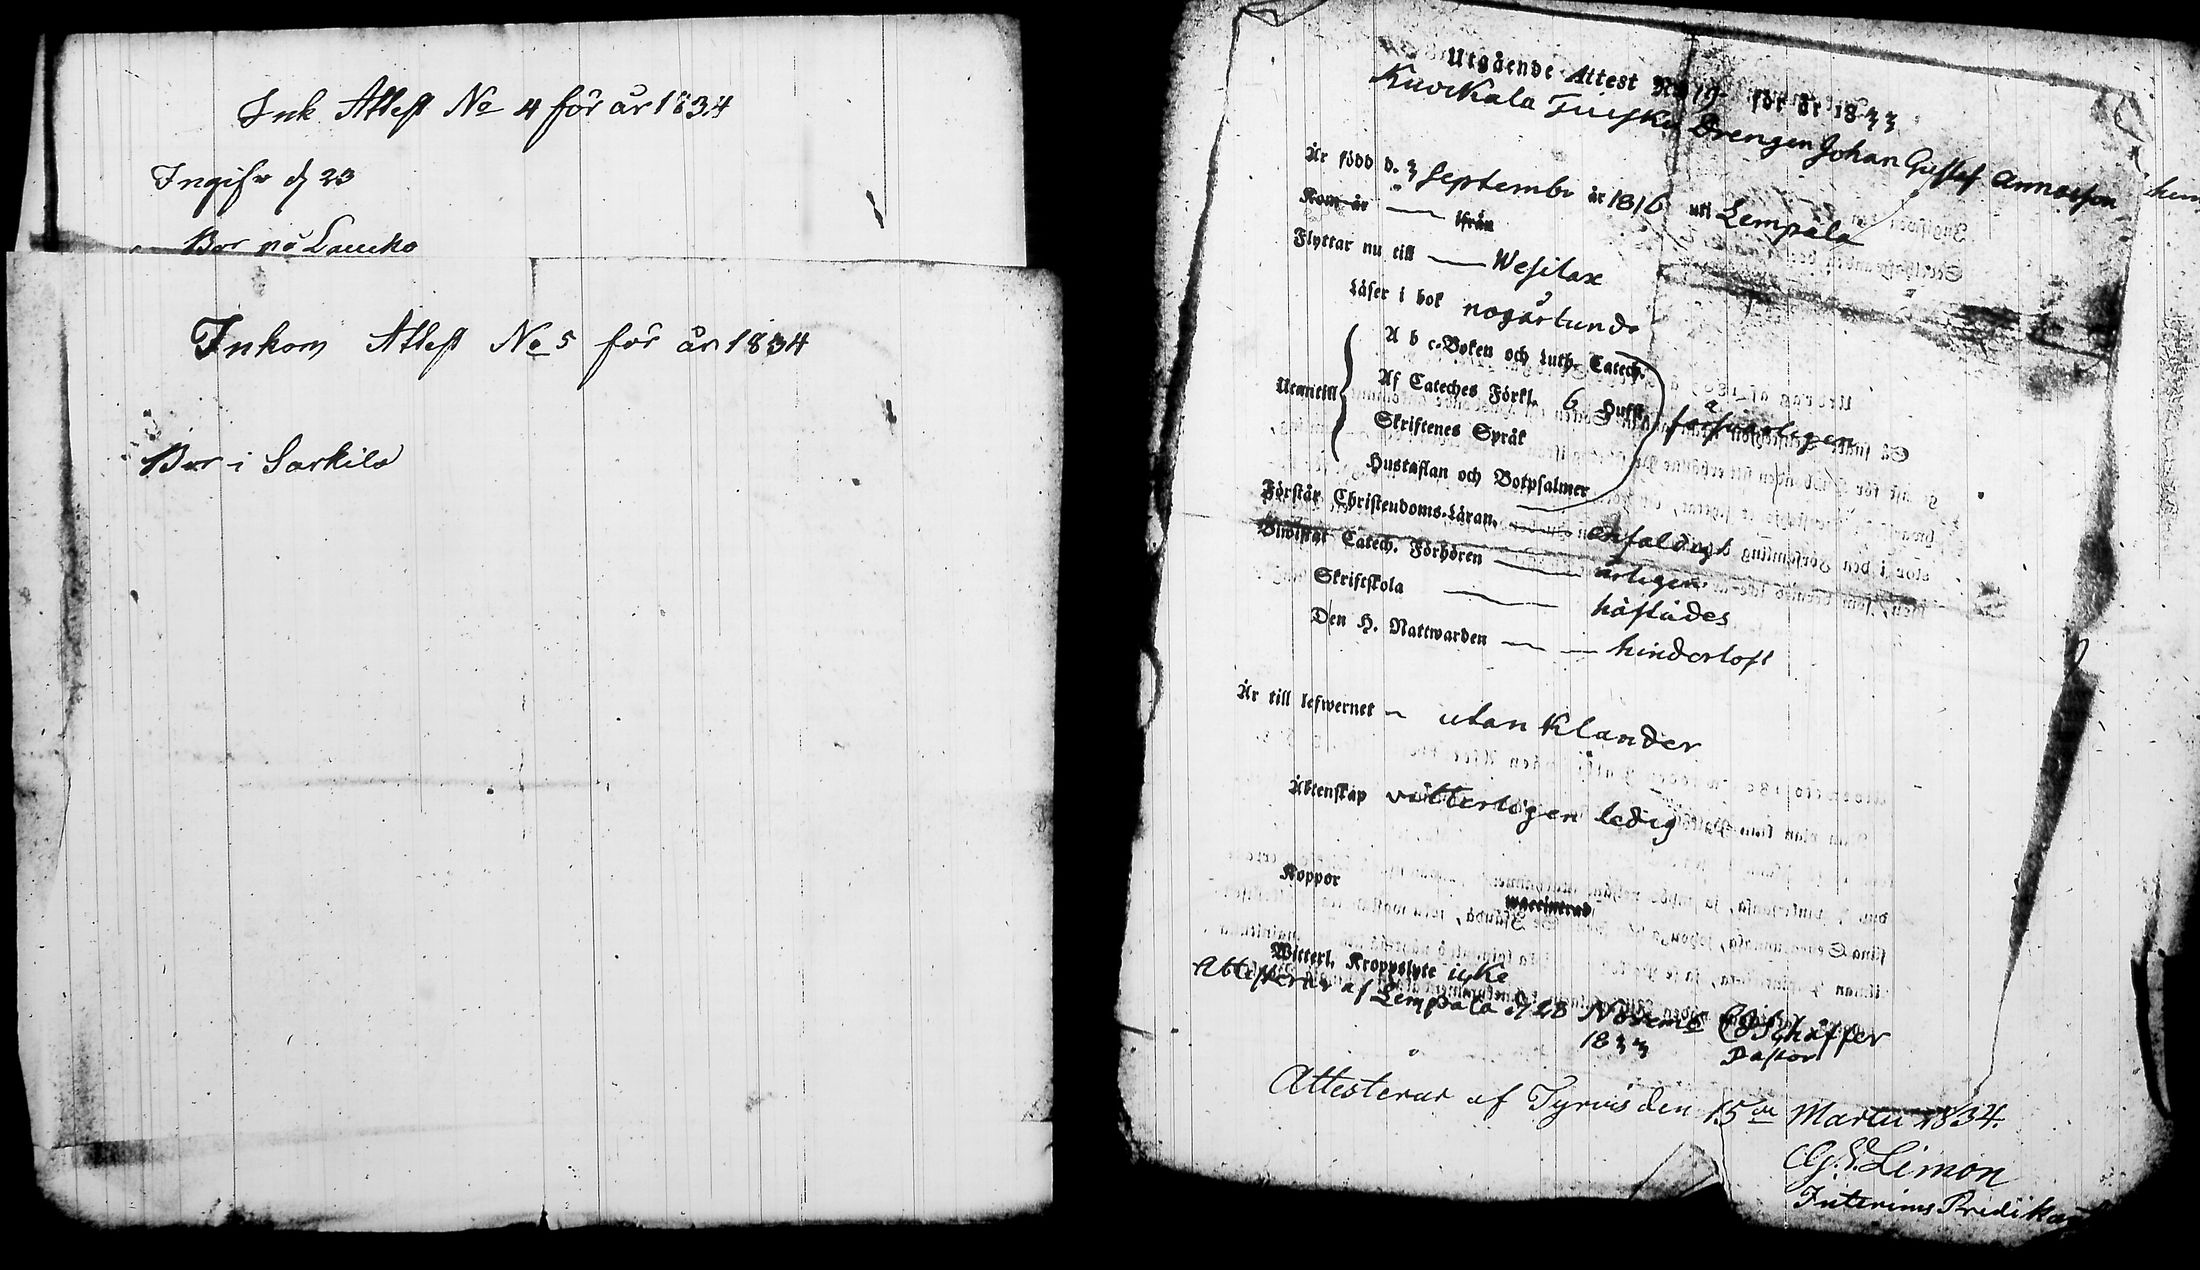 Ink Attest No 4 för år 1834
Ingifv d 23
Bor på Laucko
Inkom Attest No 5 för år 1834
Bor i Sarkila
Utgående Attest No 19 för år 1833
Kuockala Drengen Johan Gustaf Annaesson
Är född d. 3 Septembr år 1816 uti Lempälä
Kom år — ifrån
Flyttar nu till — Wesilax
Läser i bok någorlunda
A b c-Boken och Luth. Catech.
Utantill
Af Cateches Förkl. 6 Hufst.
försvarligen
Skriftenes Språk
Hustaflan och Botpsalmer
Förstår Christendoms-Läran, — enfaldigt
Biwistat Catech. Förhören — årligen
Skriftskola — håstädes
Den H. Nattwarden — hinderlöst
Är till lefwernet — utan klander
Äktenskap vitterligen ledig
Koppor
waccinerad
Witterl. Kroppslyte icke
Attesterar af Lempälä d 28 Novemb 1833
Schäffer
Pastor
Attesterar af Tyrvis den 15de Martii 1834.
G. E. Limon
Interims Predikan